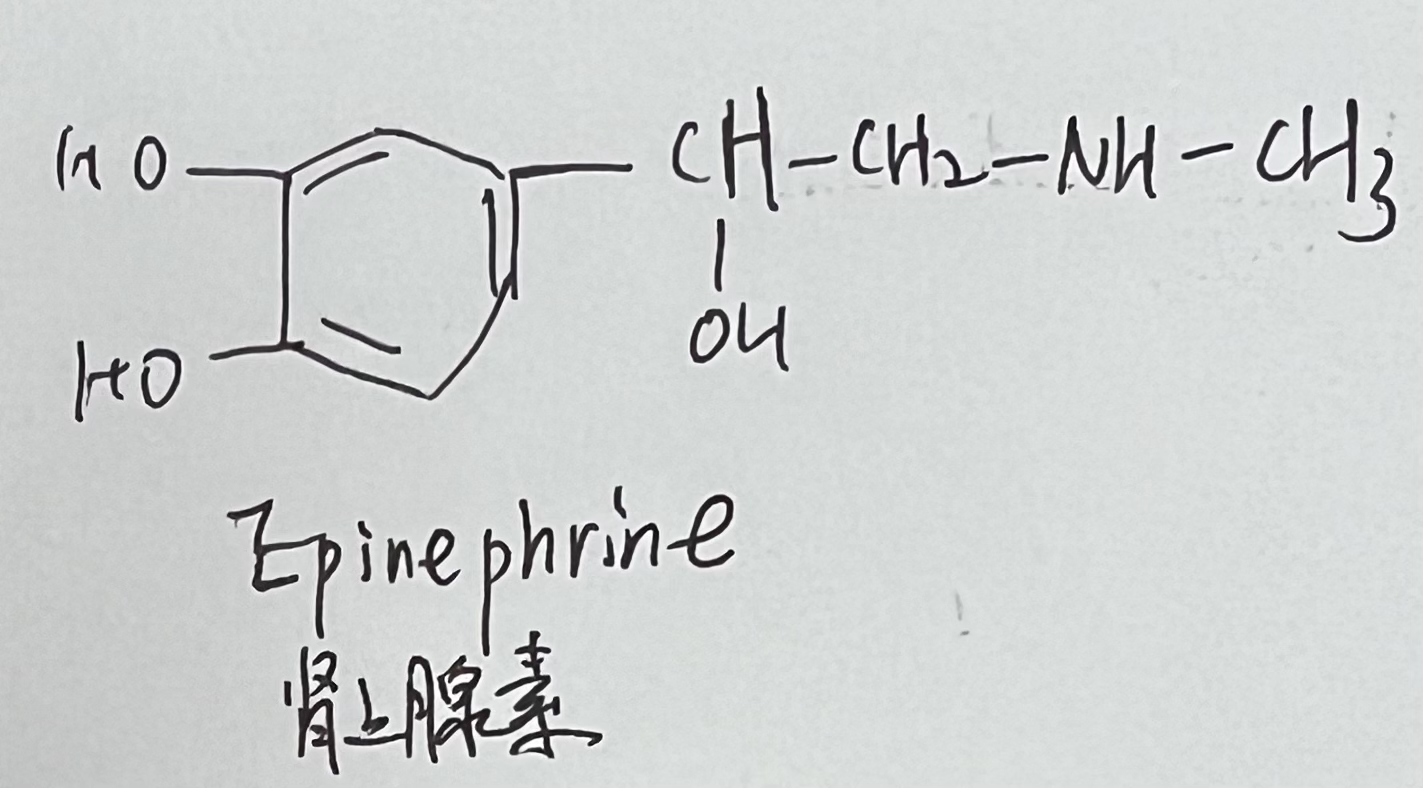 HO CH-CH₂-NH-CH₃
HO OH
Epinephrine
肾上腺素